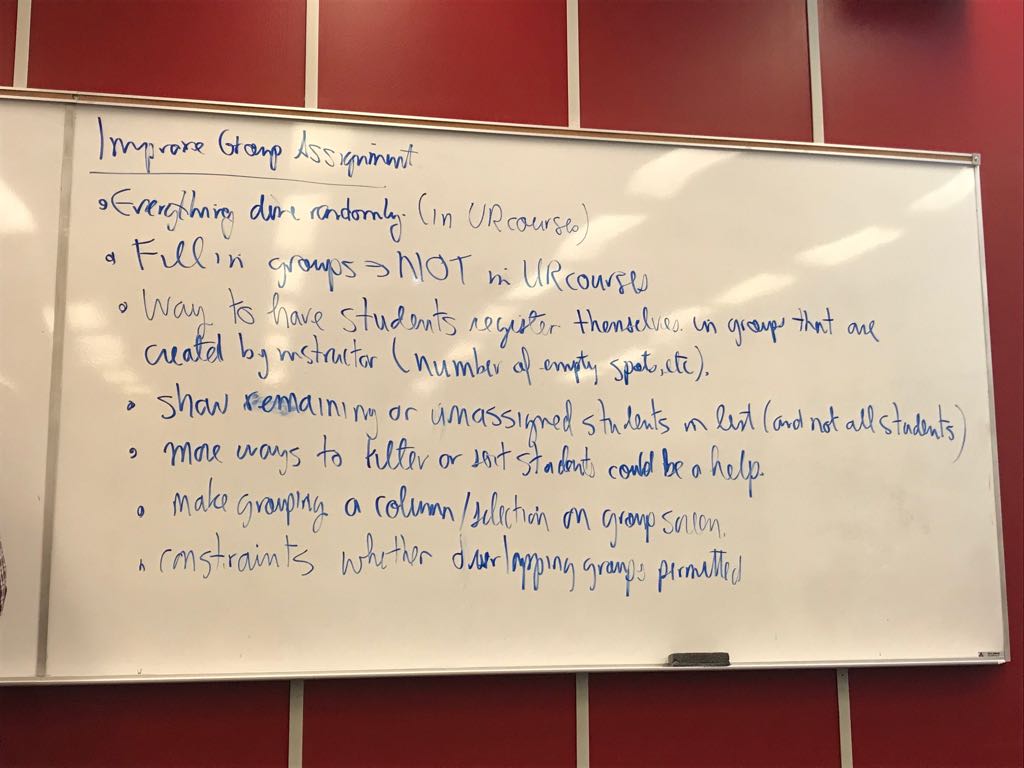 Improve Group Assignment
• Everything done randomly. (in URcourses)
• Fill in groups ⇒ NOT in URcourses
• Way to have students register themselves in groups that are
created by instructor (number of empty spots, etc).
• show remaining or unassigned students in list (and not all students)
• more ways to filter or sort students could be a help.
• make grouping a column/selection on group screen.
• constraints whether overlapping groups permitted